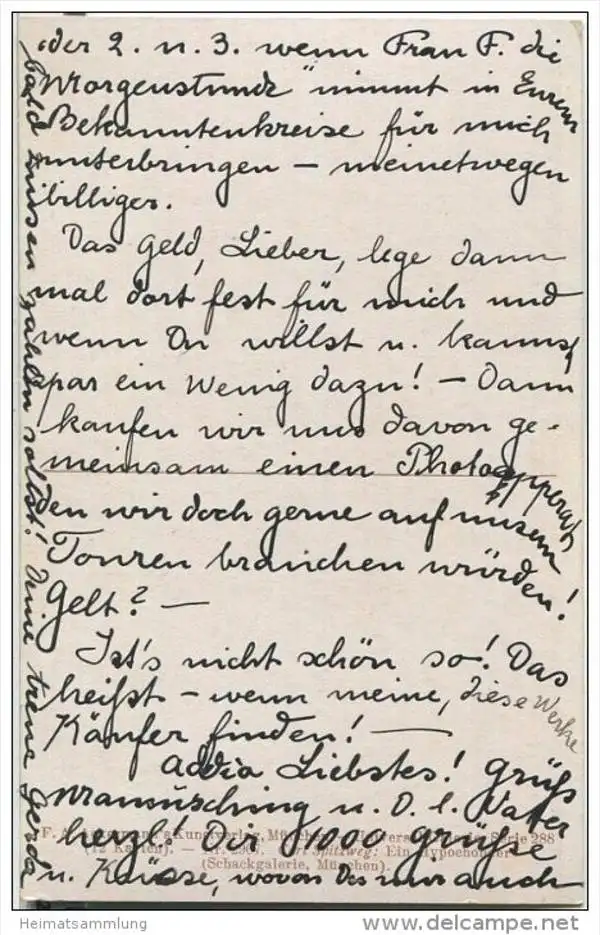 oder 2. u. 3. wenn Frau F. die
"Morgenstunde" nimmt in Eurem
Bekanntenkreise für mich
unterbringen – meinetwegen
billiger.
Das Geld, Lieber, lege dann
mal dort fest für mich und
wenn Du willst u. kannst
spar ein wenig dazu! – Dann
kaufen wir uns davon ge-
meinsam einen Photoapperat,
den wir doch gerne auf unsern
Touren brauchen würden!
Gelt? —
Ist's nicht schön so! Das
heißt – wenn meine, diese Werke
Käufer finden! —
Addia Liebstes! Grüß
u. D. l. Vater
herzl! Dir 1000 Grüße
u. Küsse, wovon Du nur auch
bald zahlen sollst! Deine treue Gerda
F. A. Ackermann's Kunstverlag, München. Serie 288
(12 Karten). – Spitzweg: Ein Hypochonder
(Schackgalerie, München).
Heimatsammlung
www.delcampe.net